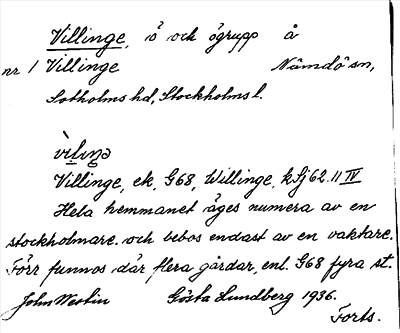 Villinge, ö och ögrupp å
nr 1 Villinge Nämdö sn,
Sotholms hd, Stockholms l.
Villinge, ek. G68, Willinge, kSj 62. II IV
Hela hemmanet äges numera av en
stockholmare och bebos endast av en vaktare.
Förr funnos där flera gårdar, enl. G68 fyra st.
John Westin Gösta Lundberg 1936.
Forts.